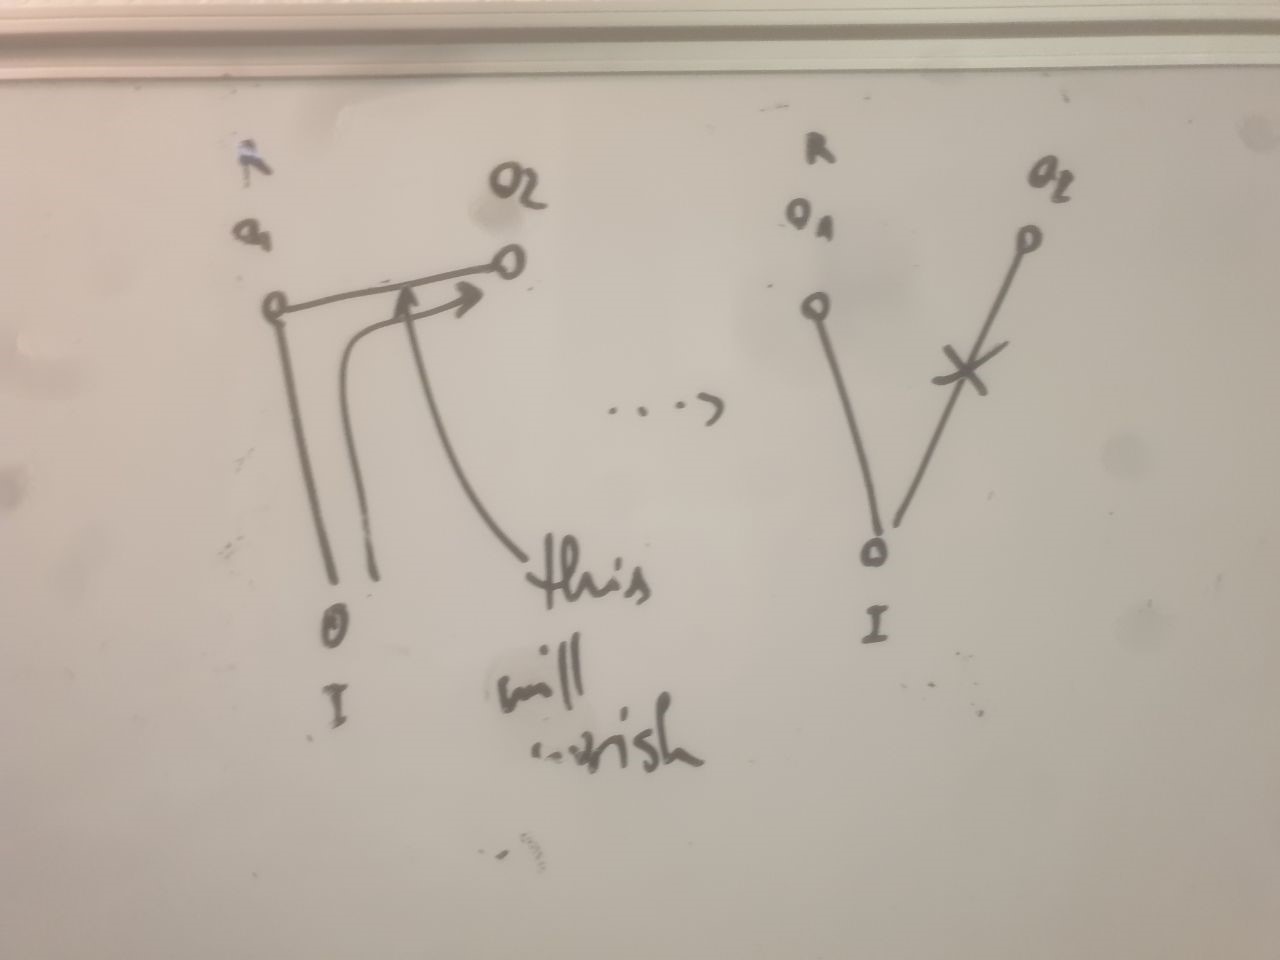 R
O1
O2
I
this
will
R
O1
O2
I